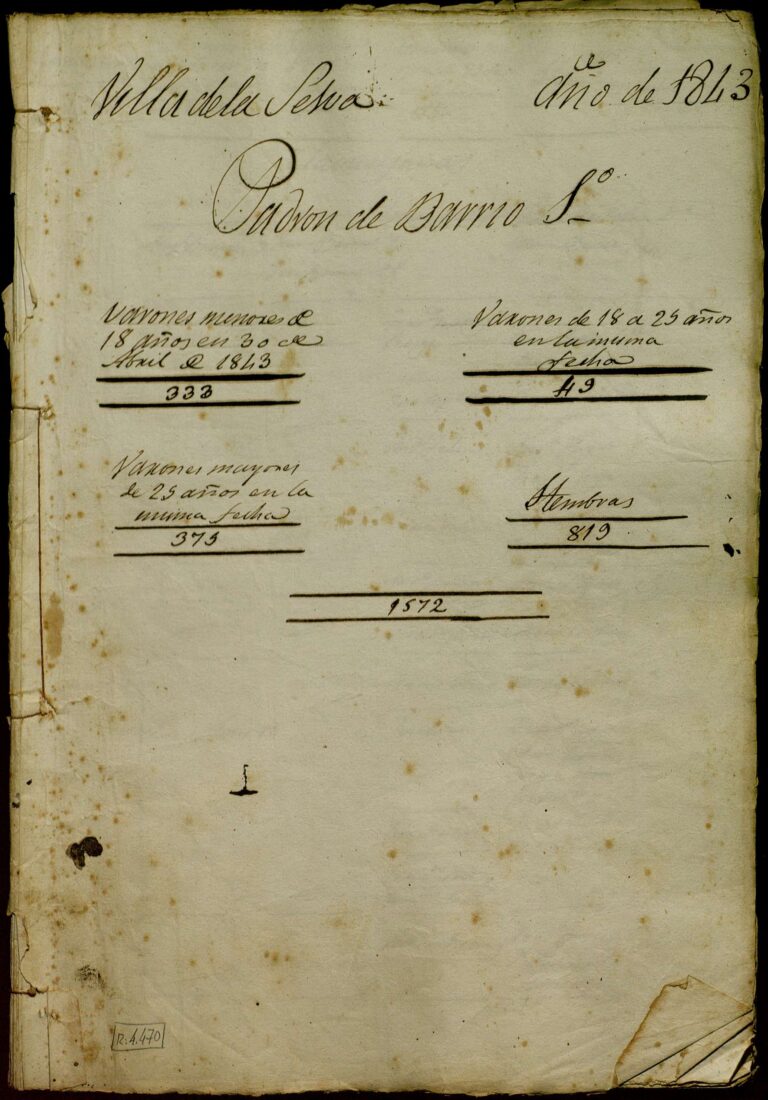 Villa de la Selva.
Año de 1843
Padron de Barrio 1º
Varones menores de
18 años en 30 de
Abril de 1843
333
Varones de 18 a 25 años
en la misma
fecha
49
Varones mayores
de 25 años en la
misma fecha
375
Hembras
819
1572
R.4.470